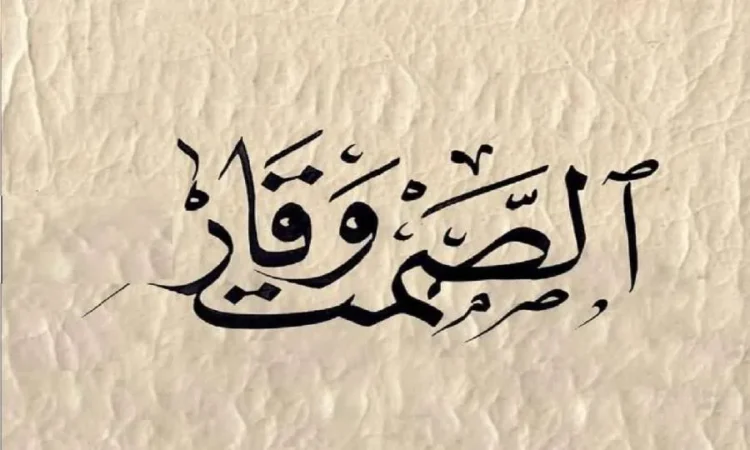 الصَّمت وَقَارْ